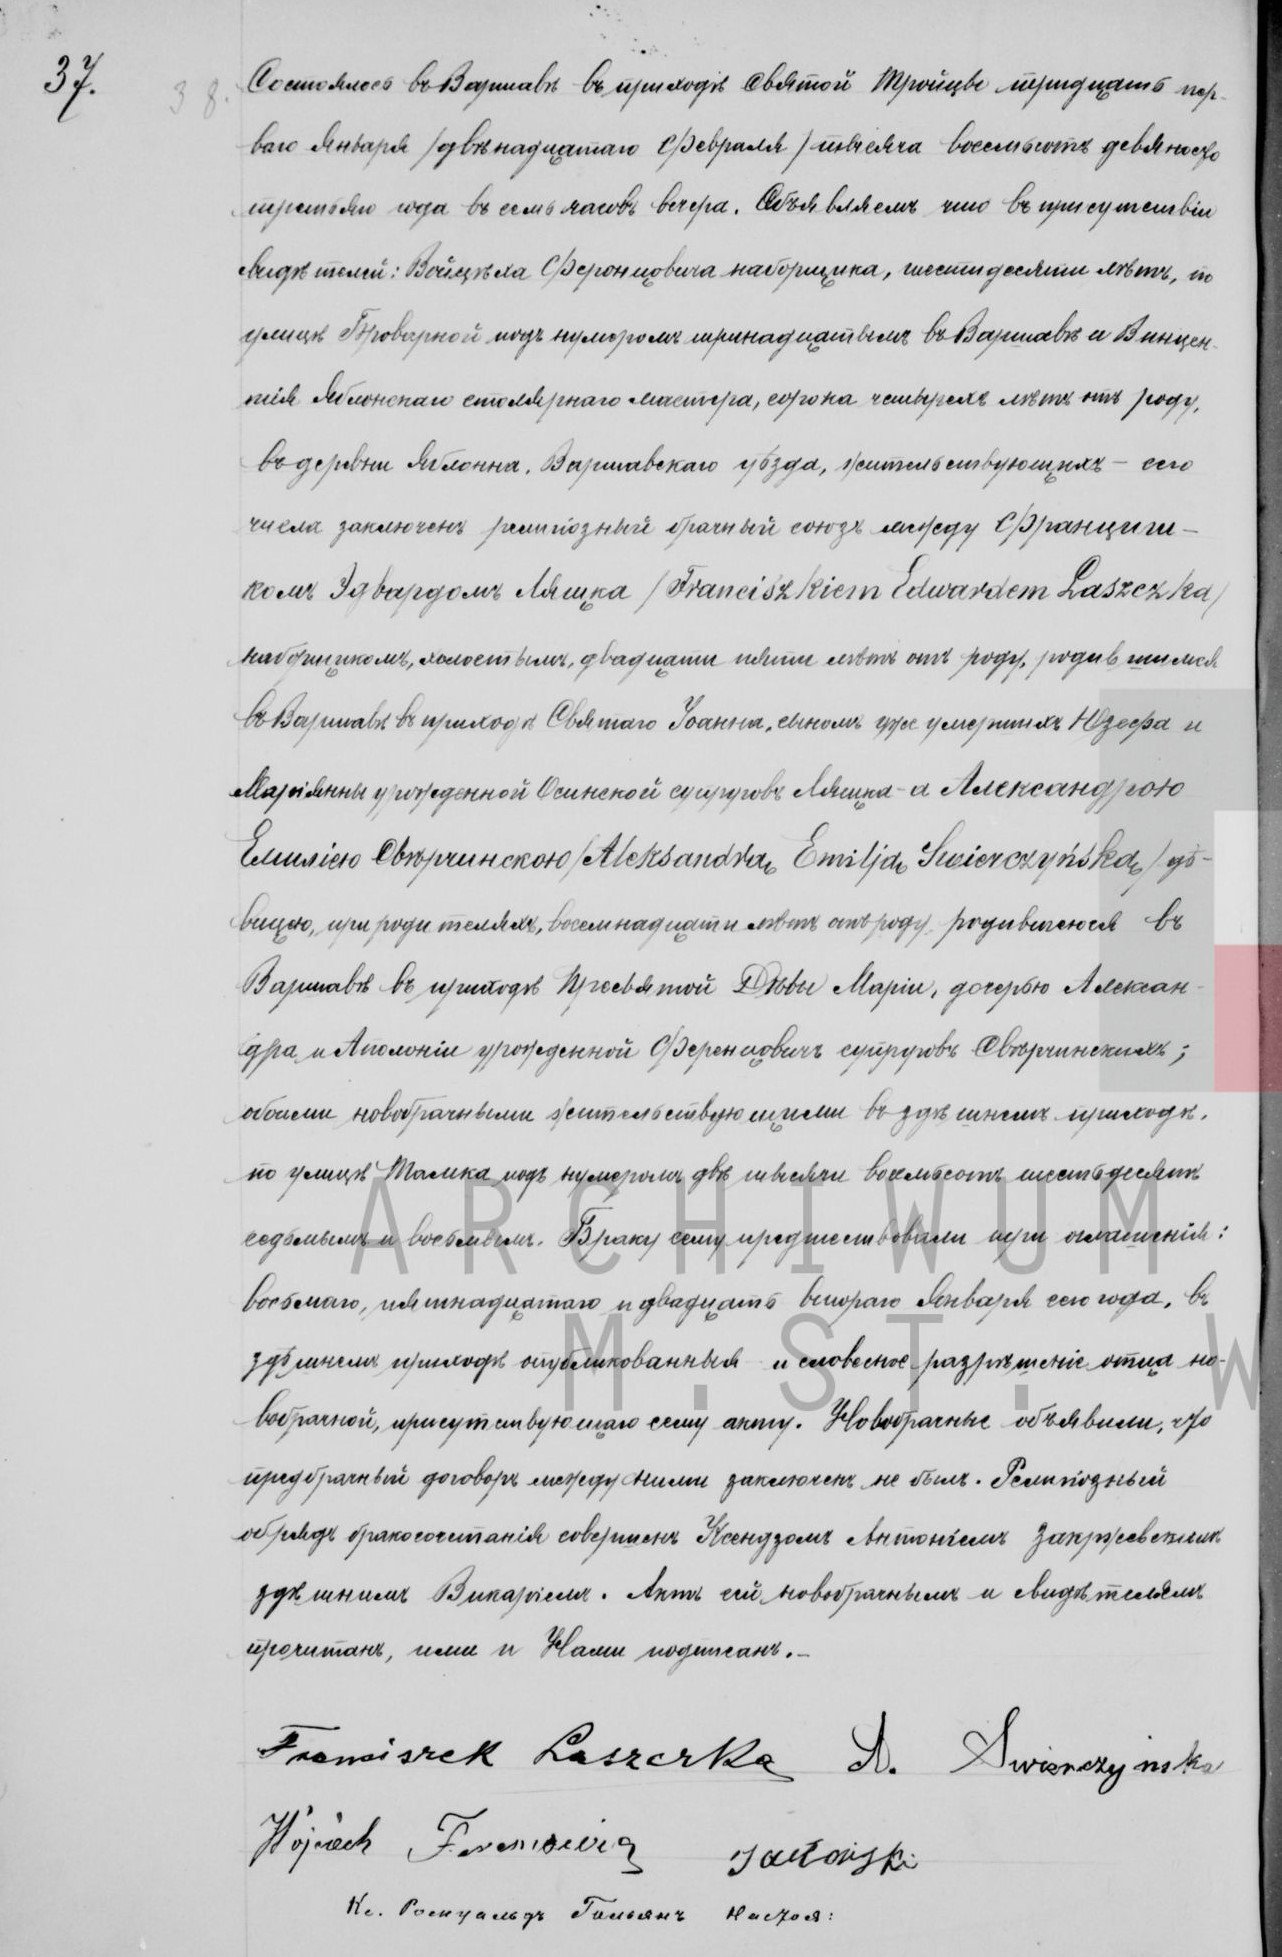 37.
38.
Состоялось въ Варшавѣ въ приходѣ Святой Тройцы тридцать пер-
ваго Января /двѣнадцатаго Февраля/ тысяча восемьсотъ девяносто
третьяго года въ семь часовъ вечера. Объявляемъ что въ присутствіи
свидѣтелей: Войцѣха Феронцовича наборщика, шестидесяти лѣтъ, по
улицѣ Броварной подъ нумеромъ тринадцатымъ въ Варшавѣ и Винцен-
тія Яблонскаго столярнаго мастера, сорока четырехъ лѣтъ отъ роду,
въ деревни Яблонна, Варшавскаго уѣзда, жительствующихъ – сего
числа заключенъ религіозный брачный союзъ между Франциш-
комъ Эдвардомъ Лящка /Franciszkiem Edwardem Laszczka/
наборщикомъ, холостымъ, двадцати пяти лѣтъ отъ роду, родившимся
въ Варшавѣ въ приходѣ Святаго Іоанна, сыномъ уже умершихъ Юзефа и
Маріянны урожденной Осинской супруговъ Лящка – а Александрою
Емиліею Свѣрчинскою /Aleksandrą Emilją Swierczyńską/ дѣ-
вицею, при родителяхъ, восемнадцати лѣтъ отъ роду, родившеюся въ
Варшавѣ въ приходѣ Пресвятой Дѣвы Маріи, дочерью Алексан-
дра и Аполоніи урожденной Ференцовичъ супруговъ Свѣрчинскихъ;
обоими новобрачными жительствующими въ здѣшнемъ приходѣ,
по улицѣ Тамка подъ нумеромъ двѣ тысячи восемьсотъ шестьдесятъ
седьмымъ и восьмымъ. Браку сему предшествовали три оглашенія:
восьмаго, пятнадцатаго и двадцать втораго Января сего года, въ
здѣшнемъ приходѣ опубликованныя и словесное разрѣшеніе отца но-
вобрачной, присутствующаго сему акту. Новобрачные объявили, что
предбрачный договоръ между ними заключенъ не былъ. Религіозный
обрядъ бракосочетанія совершенъ Ксендзомъ Антоніемъ Закржевскимъ
здѣшнимъ Викаріемъ. Актъ сей новобрачнымъ и свидѣтелямъ
прочитанъ, ими и Нами подписанъ.–
Franciszek Laszczka A. Swierczyńska
Wojciech Ferencowicz Jabłoński
Кс. Ромуальдъ Настоя:
ARCHIWUM
M. ST. W